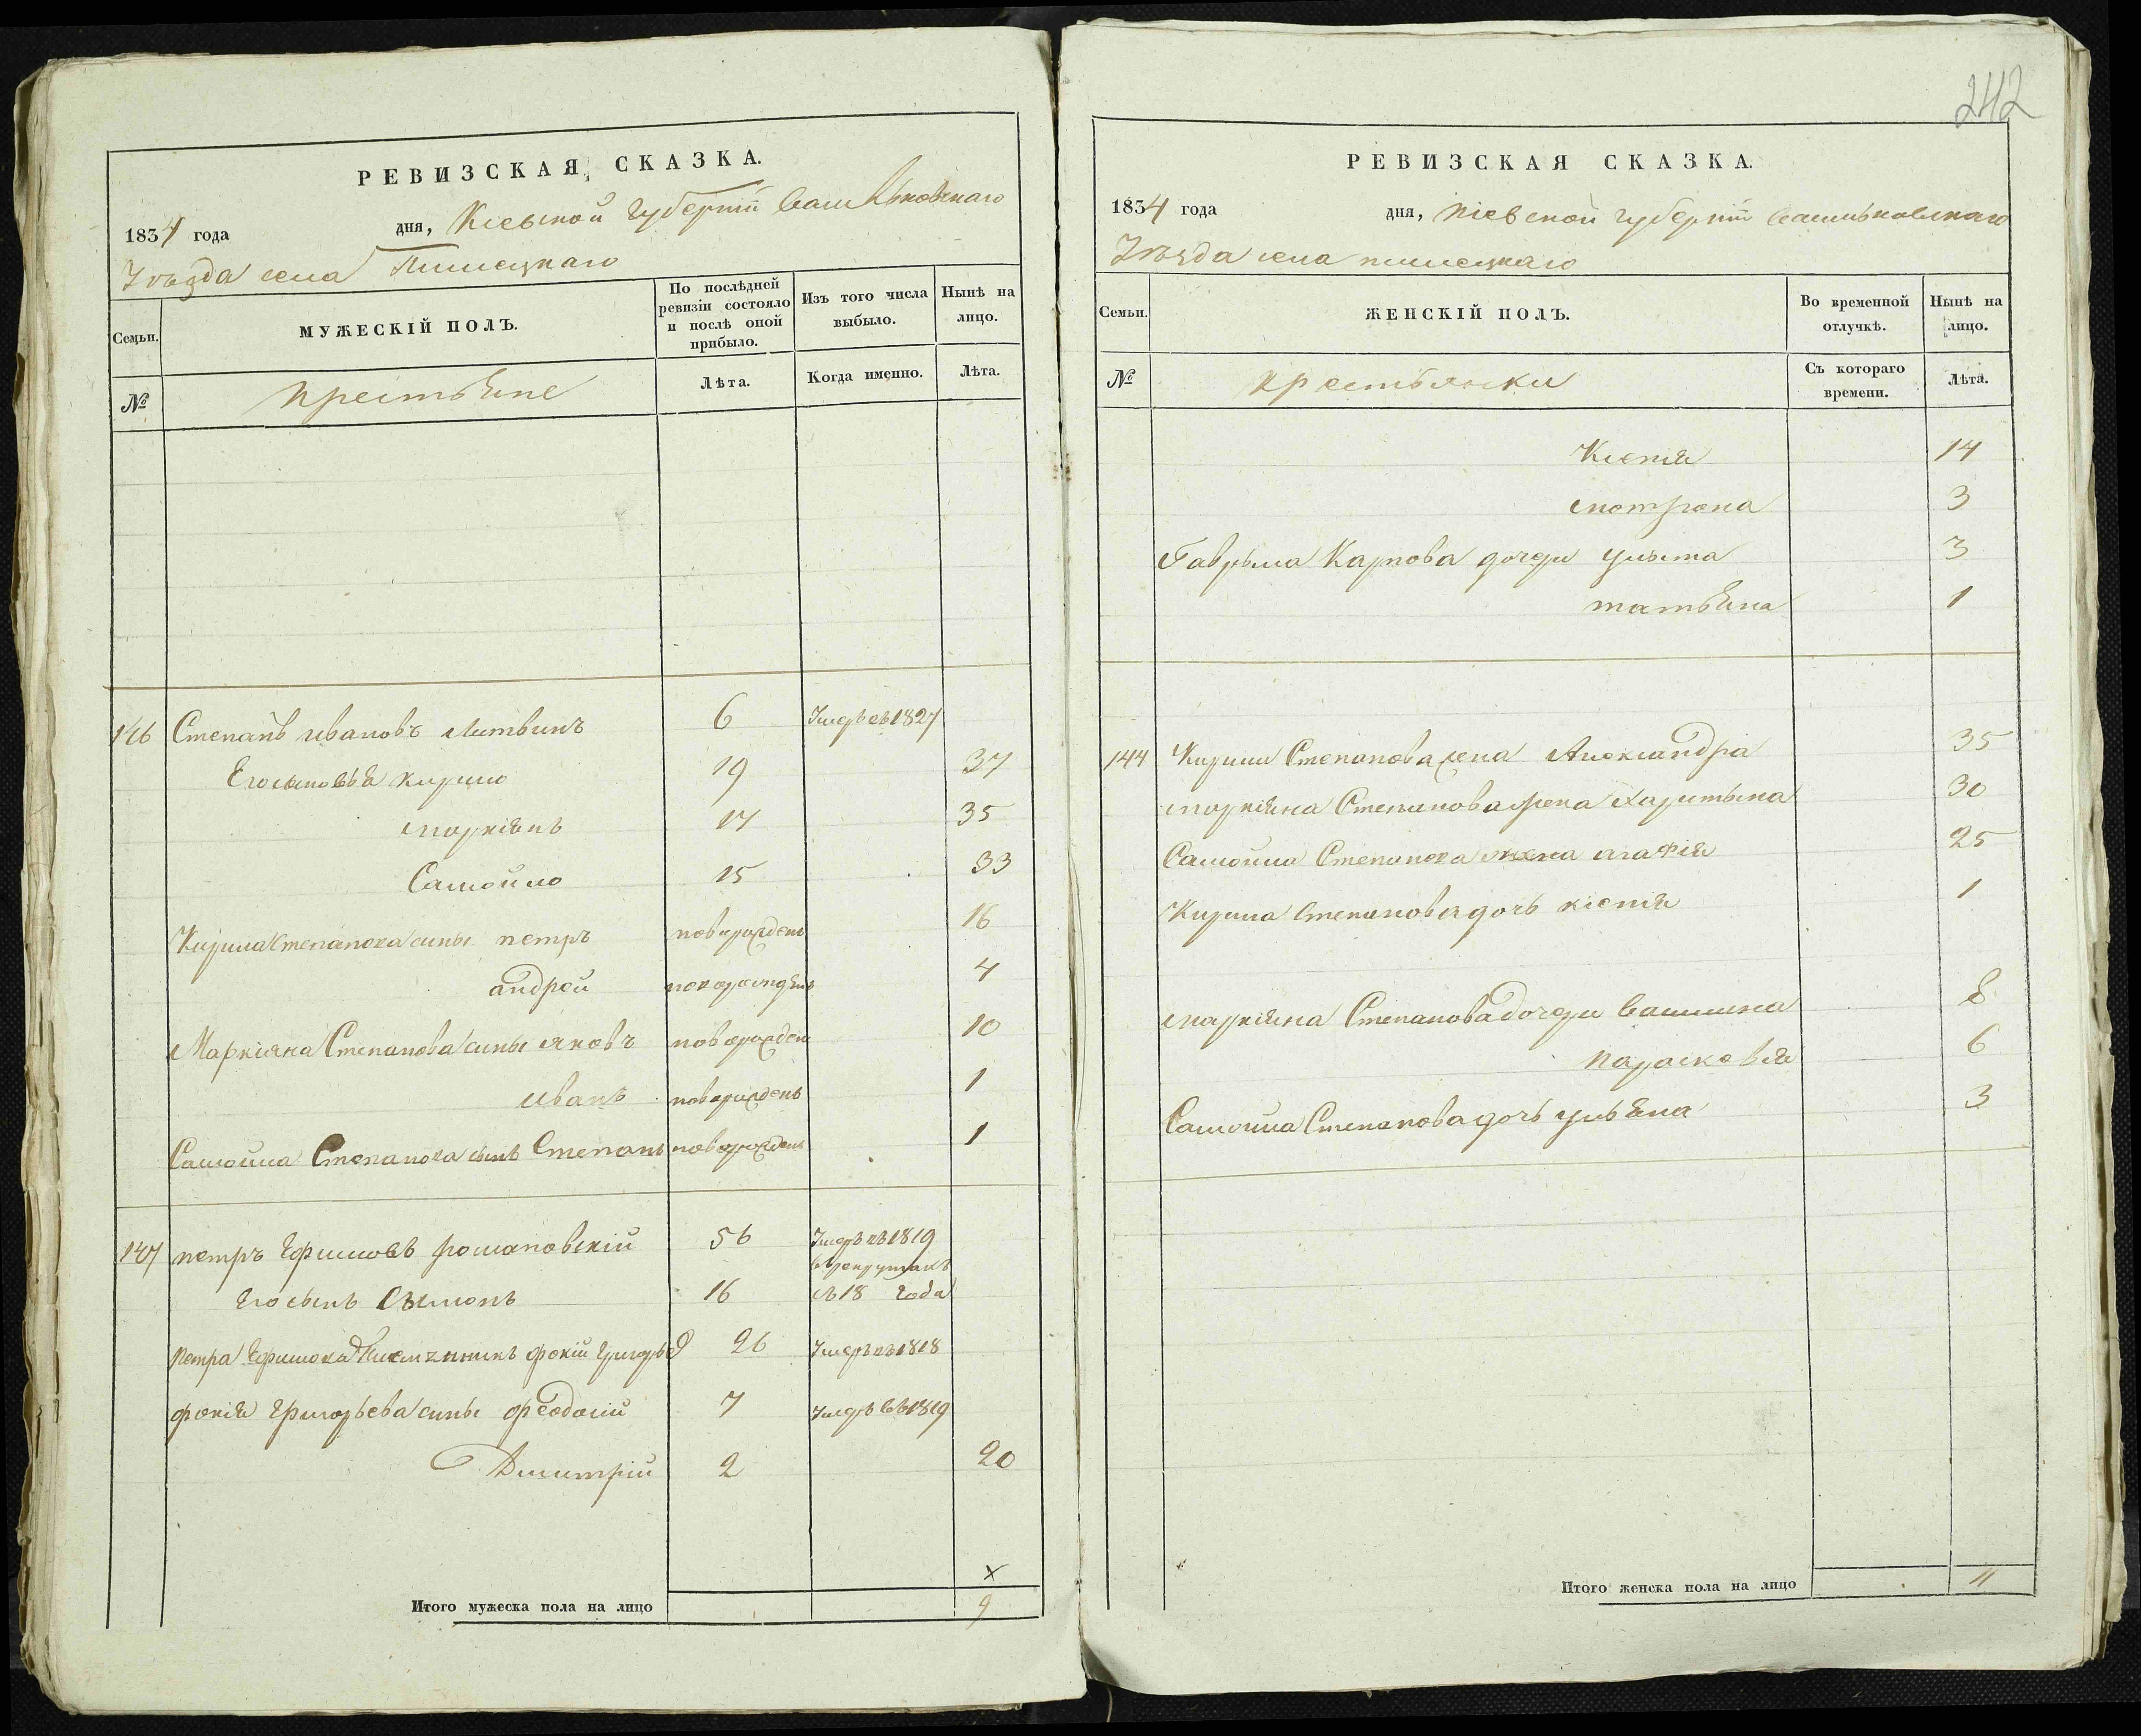 РЕВИЗСКАЯ СКАЗКА.
1834 года дня, Кіевской губерніи Васильковскаго
Уѣзда села
По послѣдней ревизіи состояло и послѣ оной прибыло.
Изъ того числа выбыло.
Нынѣ на лицо.
Семьи. МУЖЕСКІЙ ПОЛЪ.
№ крестьяне Лѣта. Когда именно. Лѣта.
146 Степанъ Ивановъ Литвинъ 6 Умеръ въ 1827
Его сыновья Кирило 19 37
Маркіянъ 17 35
Самойло 15 33
Кирила Степанова сины петръ новорожденъ 16
андрей новорожденъ 4
Маркіяна Степанова сины яковъ новорожден 10
иванъ новорожденъ 1
Самойла Степанова сынъ Степанъ новорожденъ 1
147 петръ Ефимовъ романовскій 56 Умеръ въ 1819
Его сынъ Сымонъ 16 въ рекрутахъ съ 18 года
Петра Ефимова фокій Григорьев 26 Умеръ въ 1818
фокія Григорьева сины феодосій 7 Умеръ въ 1819
Димитрій 2 20
х
Итого мужеска пола на лицо 9
242
РЕВИЗСКАЯ СКАЗКА.
1834 года дня, Кіевской губерніи Васильковскаго
Уѣзда села
Семьи. ЖЕНСКІЙ ПОЛЪ. Во временной отлучкѣ. Нынѣ на лицо.
№ крестьянки Съ котораго времени. Лѣта.
Ксенія 14
мотрона 3
Гаврыла Карпова дочери улыта 3
татьяна 1
144 Кирила Степанова жена Александра 35
маркіяна Степанова жена Харитына 30
Самойла Степанова жена агафія 25
Кирила Степанова дочь ксенія 1
маркіяна Степанова дочери Василина 8
параскевія 6
Самойла Степанова дочь ульяна 3
Итого женска пола на лицо 11